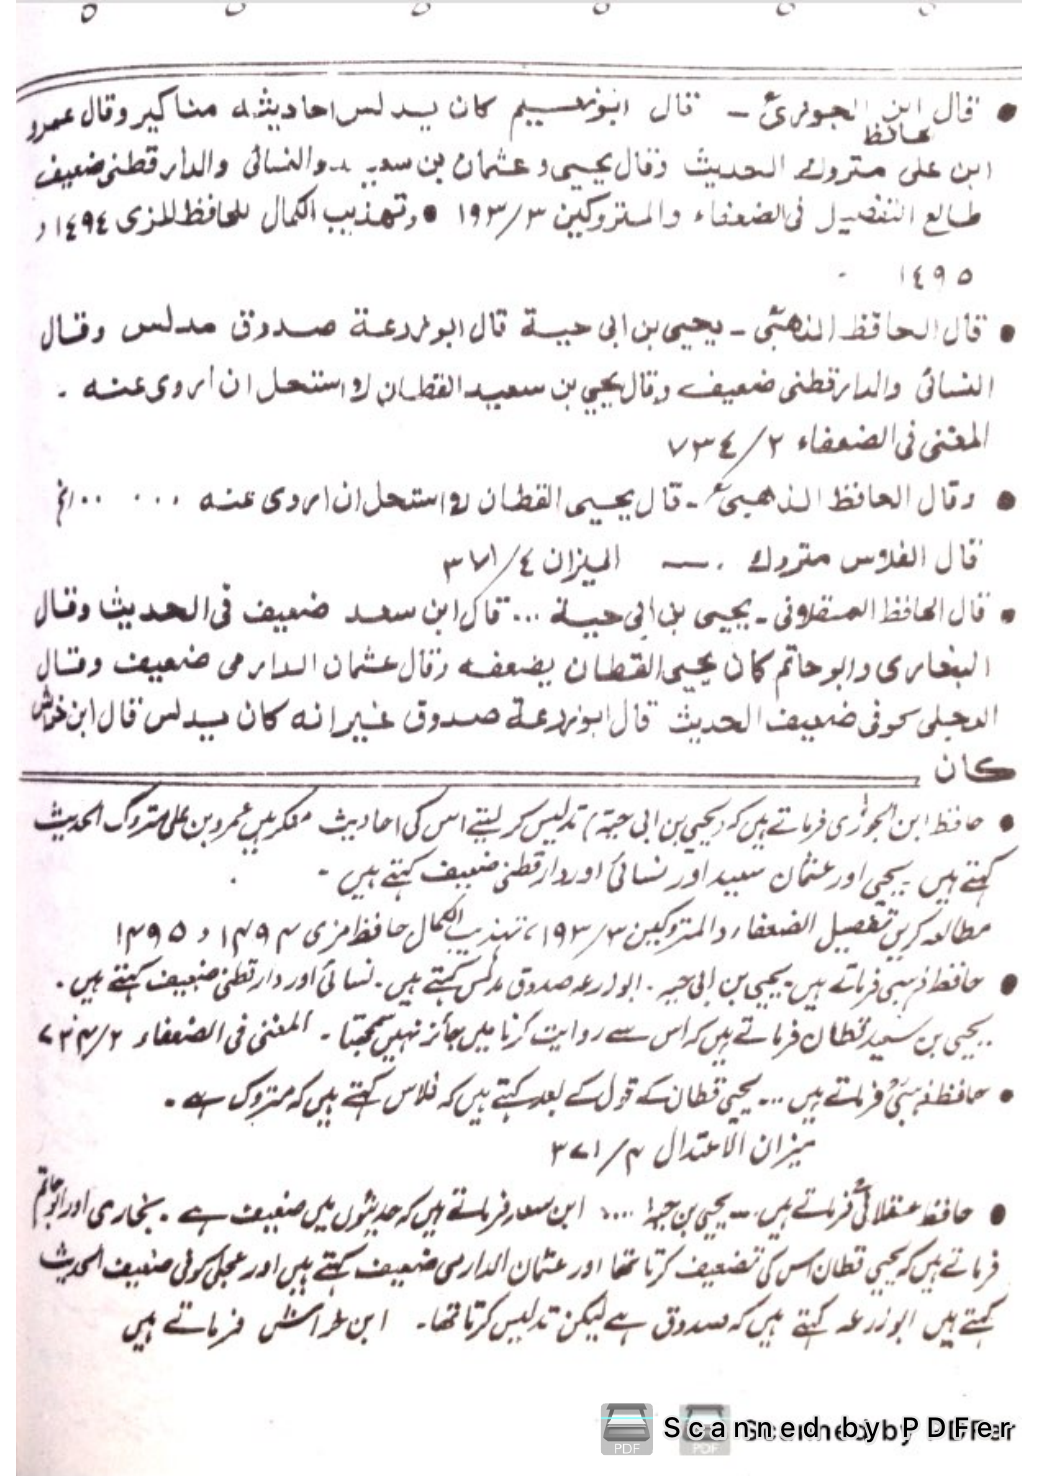 قال ابن الجوزيؒ ــ قال ابونعيم كان يدلس احاديثه مناكير وقال عمرو
حافظ
ابن علی متروك الحديث وقال يحيى و عثمان بن سعيد والنسائی والدارقطنی ضعيف
طالع التفصيل فی الضعفاء والمتروكين ۱۹۳/۳ ● وتهذيب الكمال للحافظ المزی ۱٤۹٤ و
۱٤۹۵
● قال الحافظ الذهبیؒ ــ يحيى بن ابی حية قال ابو زرعة صدوق مدلس وقال
النسائی والدارقطنی ضعيف وقال يحيى بن سعيد القطان لا استحل ان اروی عنه ۔
المغنی فی الضعفاء ۷۳٤/۲
● وقال الحافظ الذهبیؒ ــ قال يحيى القطان لا استحل ان اروی عنه ... ۰۰ الخ
قال الفلاس متروك ۔ الميزان ۳۷۱/٤
● قال الحافظ العسقلانی ــ يحيى بن ابی حية ... قال ابن سعد ضعيف فی الحديث وقال
البخاری وابو حاتم كان يحيى القطان يضعفه وقال عثمان الدارمی ضعيف وقال
العجلی كوفی ضعيف الحديث قال ابوزرعة صدوق غير انه كان يدلس قال ابن خراش
كان
● حافظ ابن الجوزی فرماتے ہیں کہ (یحیی بن ابی حیۃ) تدلیس کرلیتے اس کی احادیث منکر ہیں عمرو بن علی متروک الحدیث
کہتے ہیں ۔ یحیی اور عثمان سعید اور نسائی اور دارقطنی ضعیف کہتے ہیں ۔
مطالعہ کریں تفصیل الضعفاء والمتروکین ۱۹۳/۳، تہذیب الکمال حافظ مزی ۱۴۹۴ و ۱۴۹۵
● حافظ ذہبی فرماتے ہیں ۔ یحیی بن ابی حیہ ۔ ابوزرعہ صدوق مدلس کہتے ہیں ۔ نسائی اور دارقطنی ضعیف کہتے ہیں ۔
یحیی بن سعید قطان فرماتے ہیں کہ اس سے روایت کرنا میں جائز نہیں سمجھتا ۔ المغنی فی الضعفاء ۷۳۴/۲
● حافظ ذہبیؒ فرماتے ہیں ... یحیی قطان کے قول کے بعد کہتے ہیں کہ فلاس کہتے ہیں کہ متروک ہے ۔
میزان الاعتدال ۳۷۱/۴
● حافظ عسقلانیؒ فرماتے ہیں ... یحیی بن حیہ .... ابن سعد فرماتے ہیں کہ حدیثوں میں ضعیف ہے ۔ بخاری اور ابو حاتم
فرماتے ہیں کہ یحیی قطان اس کی تضعیف کرتا تھا اور عثمان الدارمی ضعیف کہتے ہیں اور عجلی کوفی ضعیف الحدیث
کہتے ہیں ابوزرعہ کہتے ہیں کہ صدوق ہے لیکن تدلیس کرتا تھا ۔ ابن خراش فرماتے ہیں
Scanned by PDFer
Scanned by PDFer